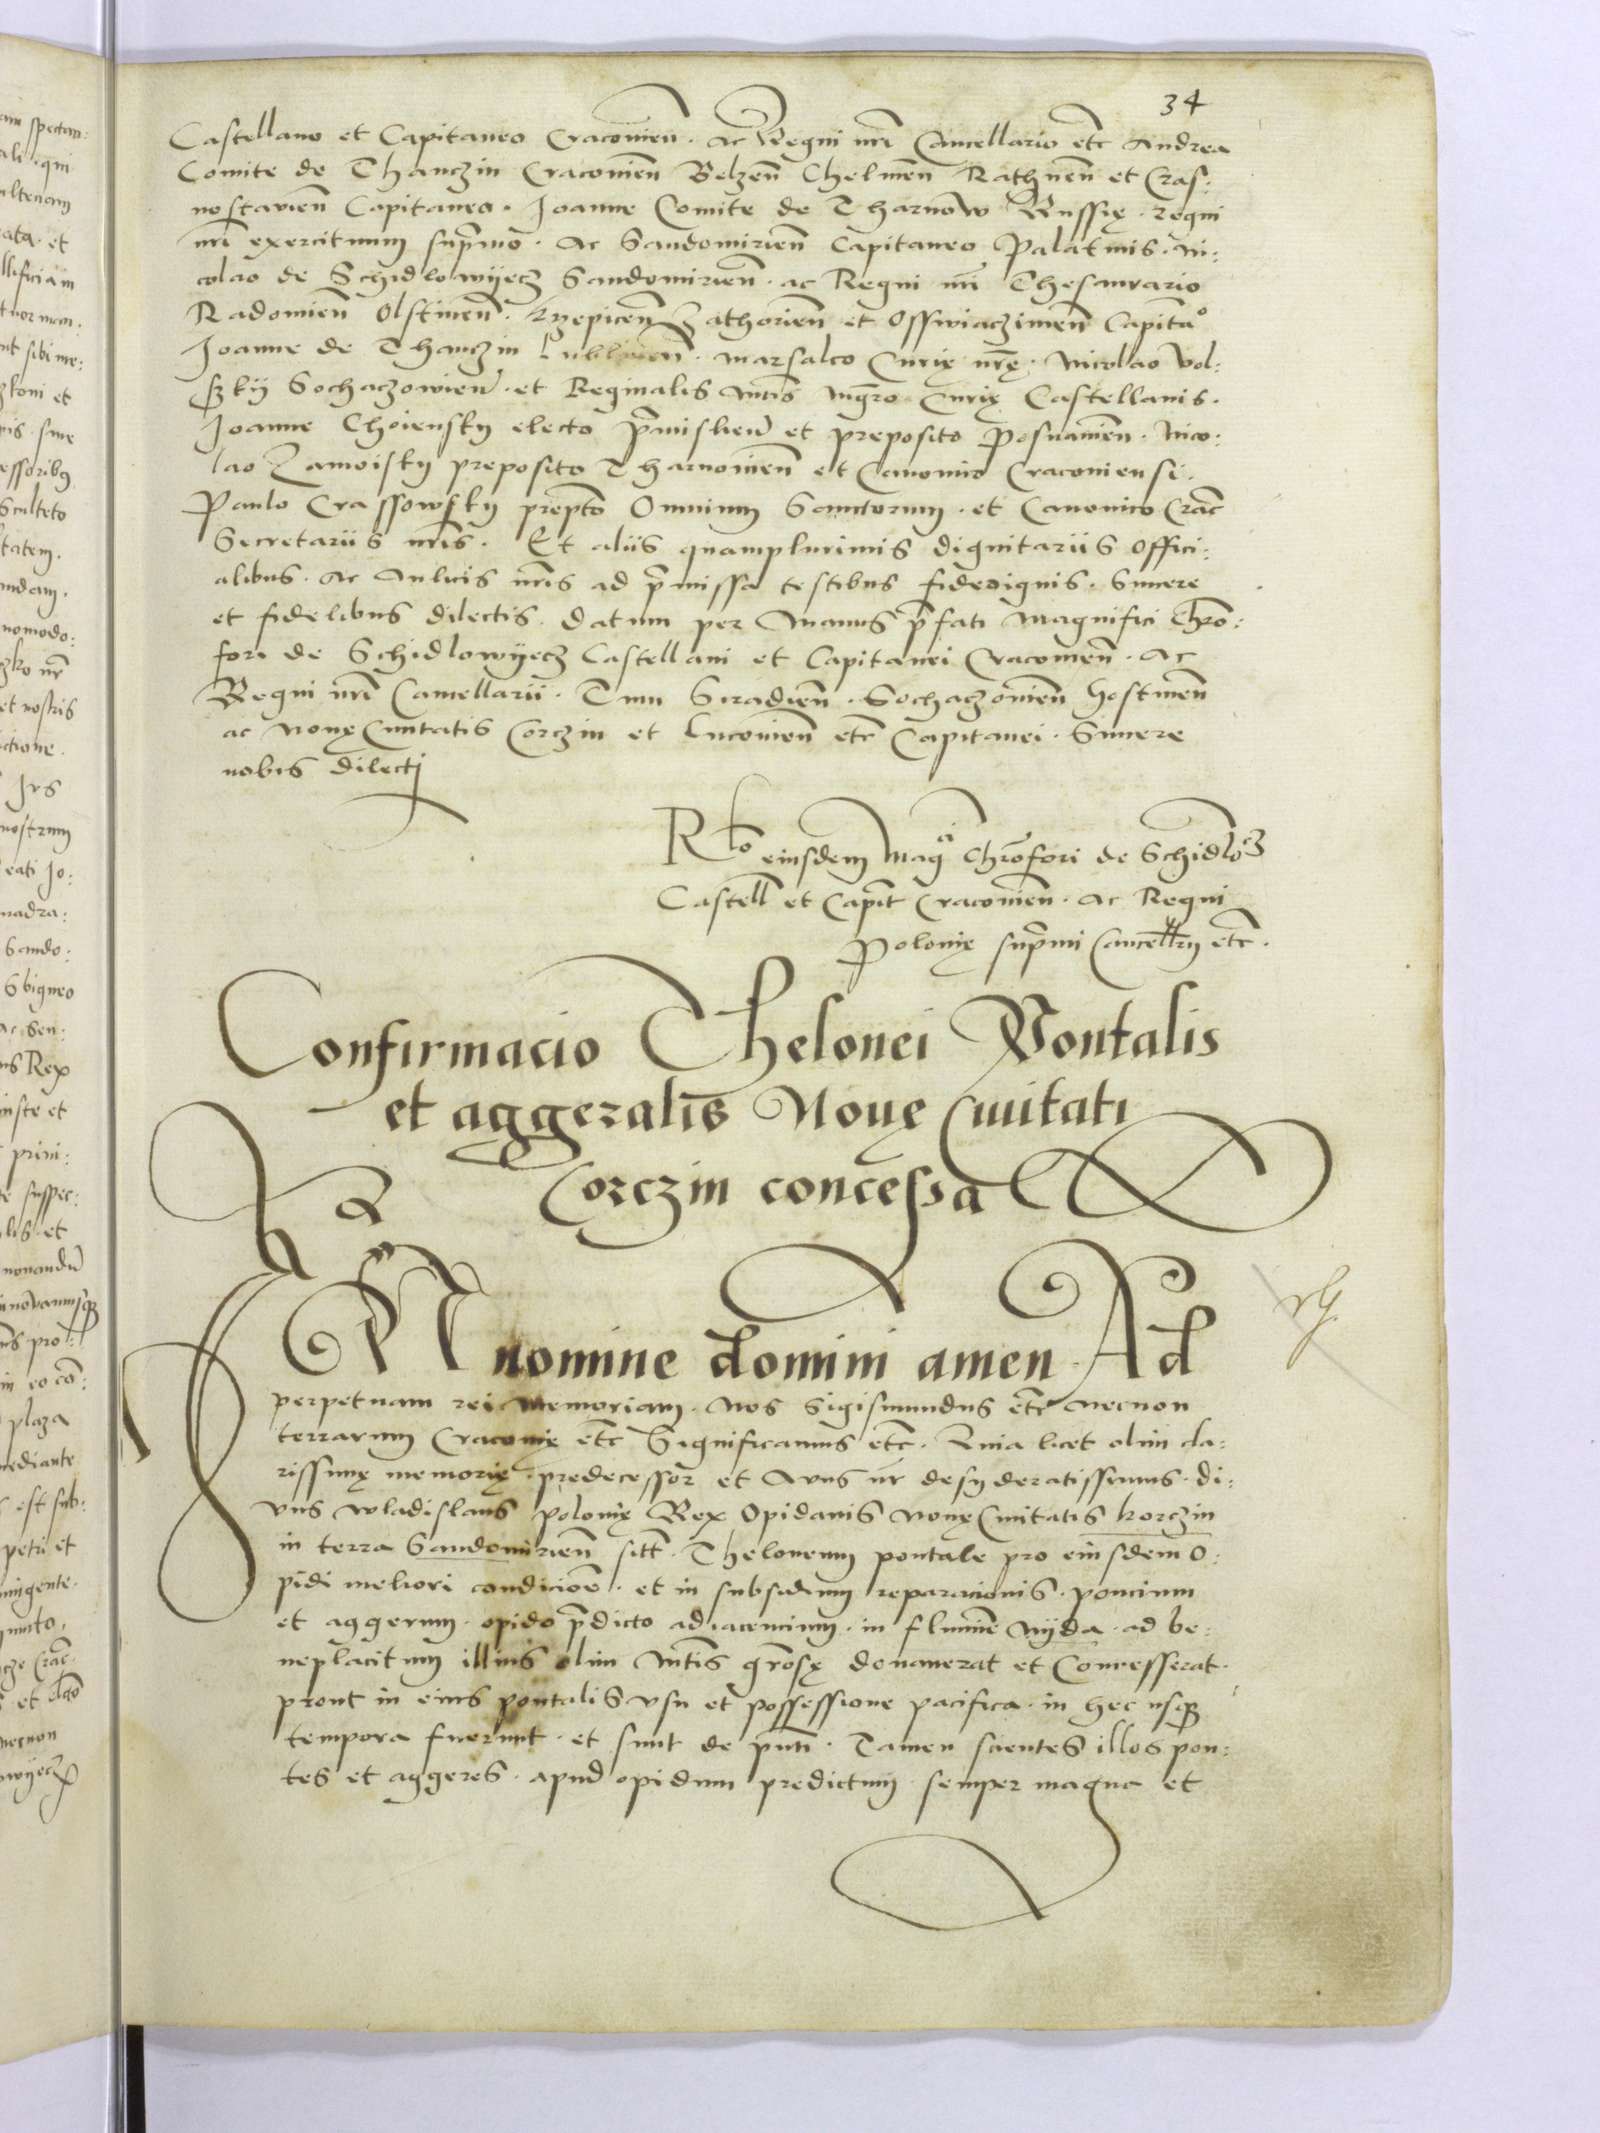 34
Castellano et Capitaneo Cracovien̄. ac Regni nr̄i Cancellario etc̄ Andrea
Comite de Thanczin Cracovien̄ Belzen̄ Chelmen̄ Rathnen̄ et Cras:
nostavien̄ Capitaneo. Joanne Comite de Tharnow Russię. regni
nr̄i exercituum sup̄mo. ac Sandomirien̄ Capitaneo Palatinis. Ni:
colao de Schidlowyecz Sandomirien̄. ac Regni nr̄i Thesaurario
Radomien̄ Olstinen̄. Kyepicen̄ Zathorien̄ et Osswiaczimen̄ Capitᵒ
Joanne de Thanczin Lublinen̄. marsalco Curię nr̄ę. Nicolao Vol:
sky Sochaczowien̄. et Reginalis Mtīs Mgr̄o Curię Castellanis.
Joanne Choiensky electo Pr̄misliēn et preposito Posnanien̄. Nico:
lao Zamoisky preposito Tharnovien̄ et Canonico Cracoviensi.
Paulo Crassowsky prepto Omnium Sanctorum. et Canonico Crac̄
Secretariis nr̄is. Et aliis quamplurimis dignitariis Offici:
alibus. ac Aulicis nr̄is ad p̄missa testibus fidedignis. Sincere
et fidelibus dilectis. Datum per Manus p̄fati Magnifici Chr̄o:
fori de Schidlowyecz Castellani et Capitanei Cracovien̄. ac
Regni nr̄i Cancellarii. Tum Siradien̄. Sochaczovien̄ Gostinen̄
ac Novę Civitatis Corczin et Lucovien̄ etc̄ Capitanei. Sincere
nobis dilecti
Rło eiusdem Mag Chr̄ofori de Schidlo
Castell̄ et Capit̄ Cracovien̄. ac Regni
Polonię sup̄mi Cancellr̄ij etc̄.
Confirmacio Thelonei Pontalis
et aggeralis Novę Civitati
Corczin concessa
In nomine domini amen. Ad
perpetuam rei memoriam. Nos Sigismundus etc̄ necnon
terrarum Cracovię etc̄ Significamus etc̄. Quia licet olim cla:
rissimę memorię. predecessor et Avus nr̄ desyderatissimus. di:
vus Wladislaus Polonię Rex Opidanis Novę Civitatis Korczin
in terra Sandomirien̄ sitt̄. Theloneum pontale pro eiusdem O:
pidi meliori condicioē. et in subsidium reparacionis. poncium
et aggerum. opido p̄dicto adiacencium. in fluminē Nyda. ad be:
neplacitum illius olim Mtīs gr̄osę donaverat et Concesserat.
prout in eius pontalis usu et possessione pacifica. in hec usq̧
tempora fuerunt. et sunt de pn̄ti. Tamen scientes illos pon:
tes et aggeres. apud opidum predictum. semper magna et